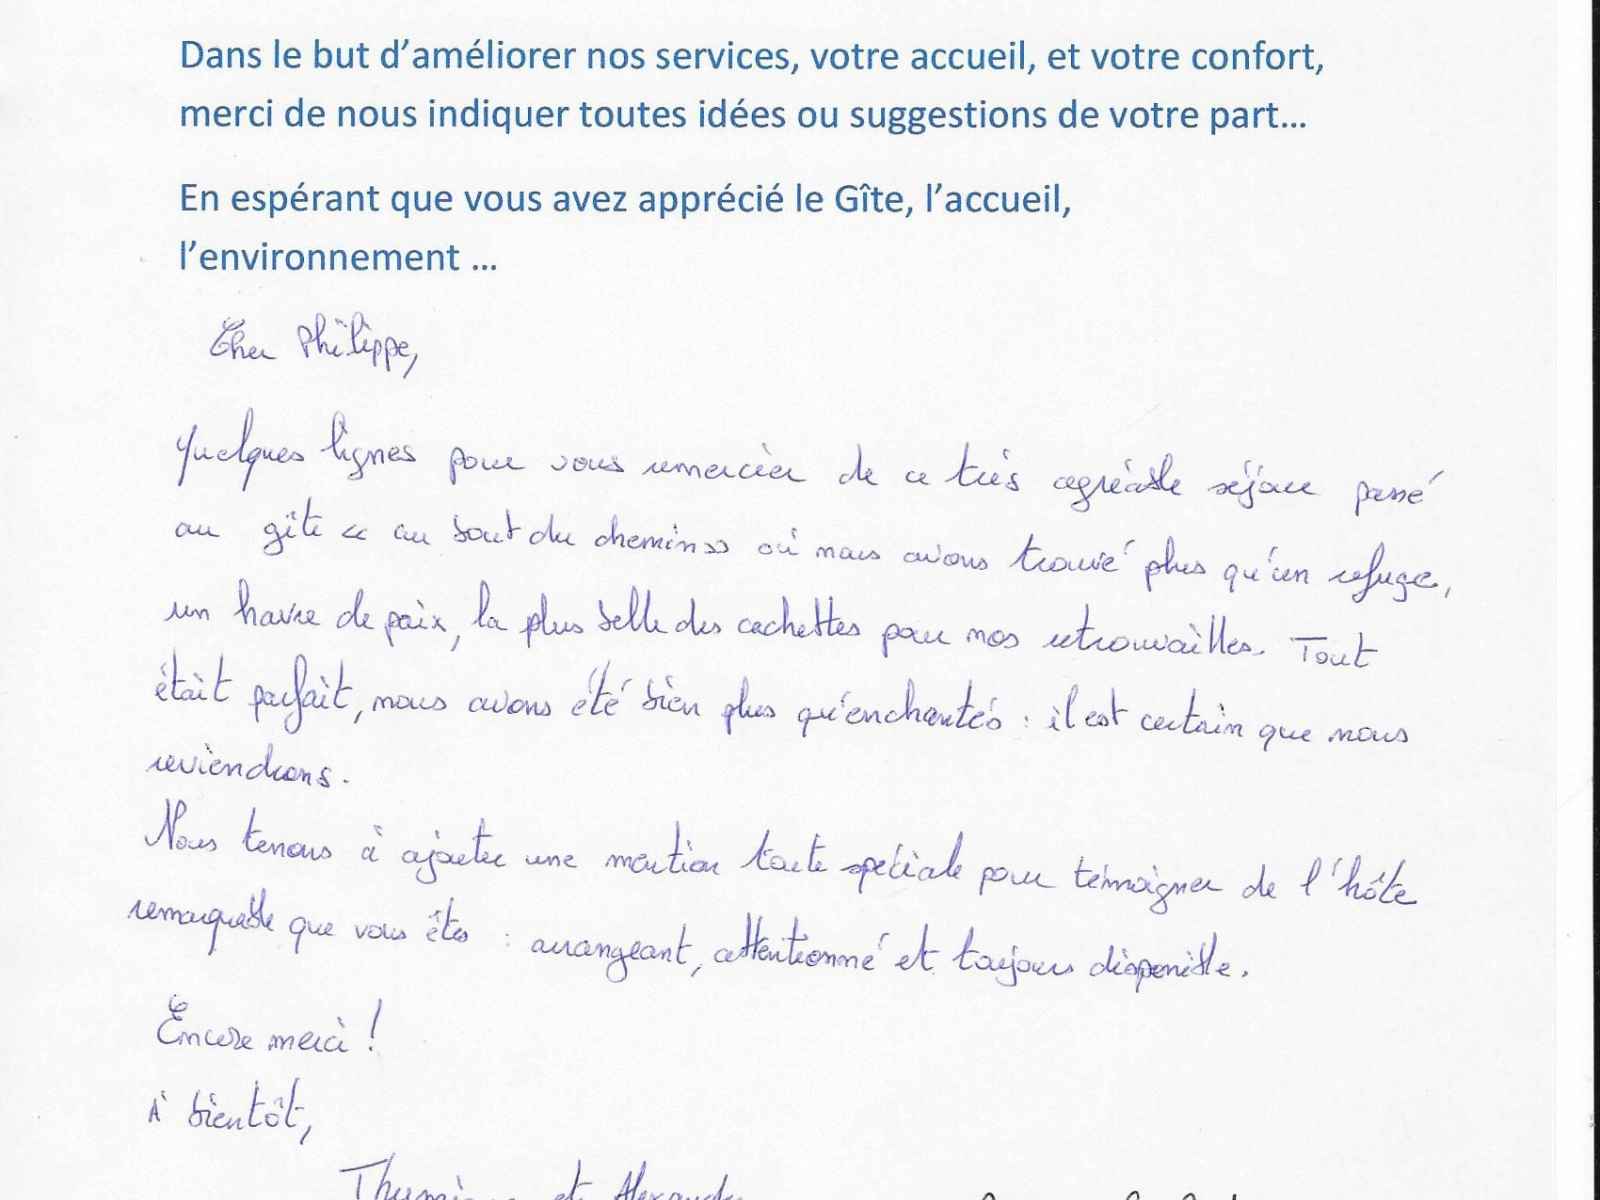 Dans le but d’améliorer nos services, votre accueil, et votre confort,
merci de nous indiquer toutes idées ou suggestions de votre part…
En espérant que vous avez apprécié le Gîte, l’accueil,
l’environnement …
Cher Philippe,
Quelques lignes pour vous remercier de ce très agréable séjour passé
au gîte « au bout du chemin » où nous avons trouvé plus qu'un refuge,
un havre de paix, la plus belle des cachettes pour nos retrouvailles. Tout
était parfait, nous avons été bien plus qu'enchantés : il est certain que nous
reviendrons.
Nous tenons à ajouter une mention toute spéciale pour témoigner de l'hôte
remarquable que vous êtes : arrangeant, attentionné et toujours disponible.
Encore merci !
À bientôt,
et